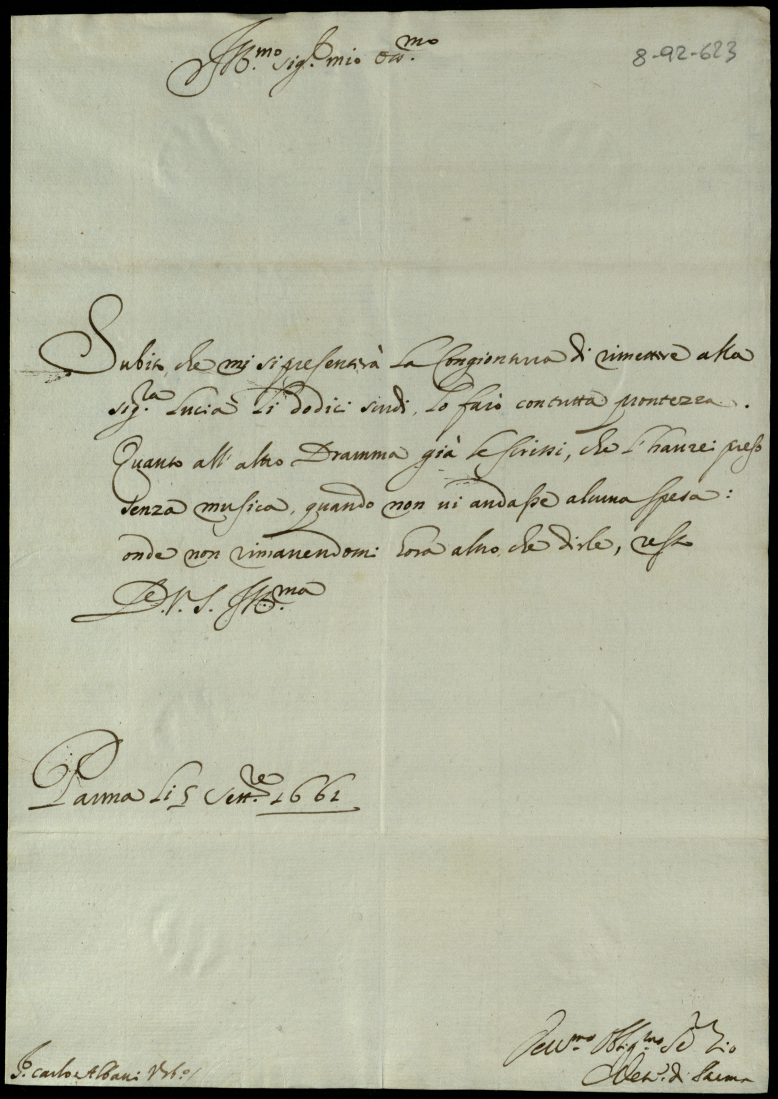 Ill.mo sig.r mio oss.mo
8-92-623
Subito, che mi si presenterà la Congiontura di rimettere alla
sig.ra Lucia li dodici scudi, lo farò con tutta prontezza.
Quanto all' altro Dramma già le scrissi, che l' haurei preso
senza musica, quando non ui andasse alcuna spesa:
onde non rimanendomi hora altro, che dirle, resto
De.V.S. Ill.ma
Parma li 5 Sett.re 1661
Deuu.mo Obblig.mo Se.r Zio
di Parma
S.r Carlo Albani Urb.o